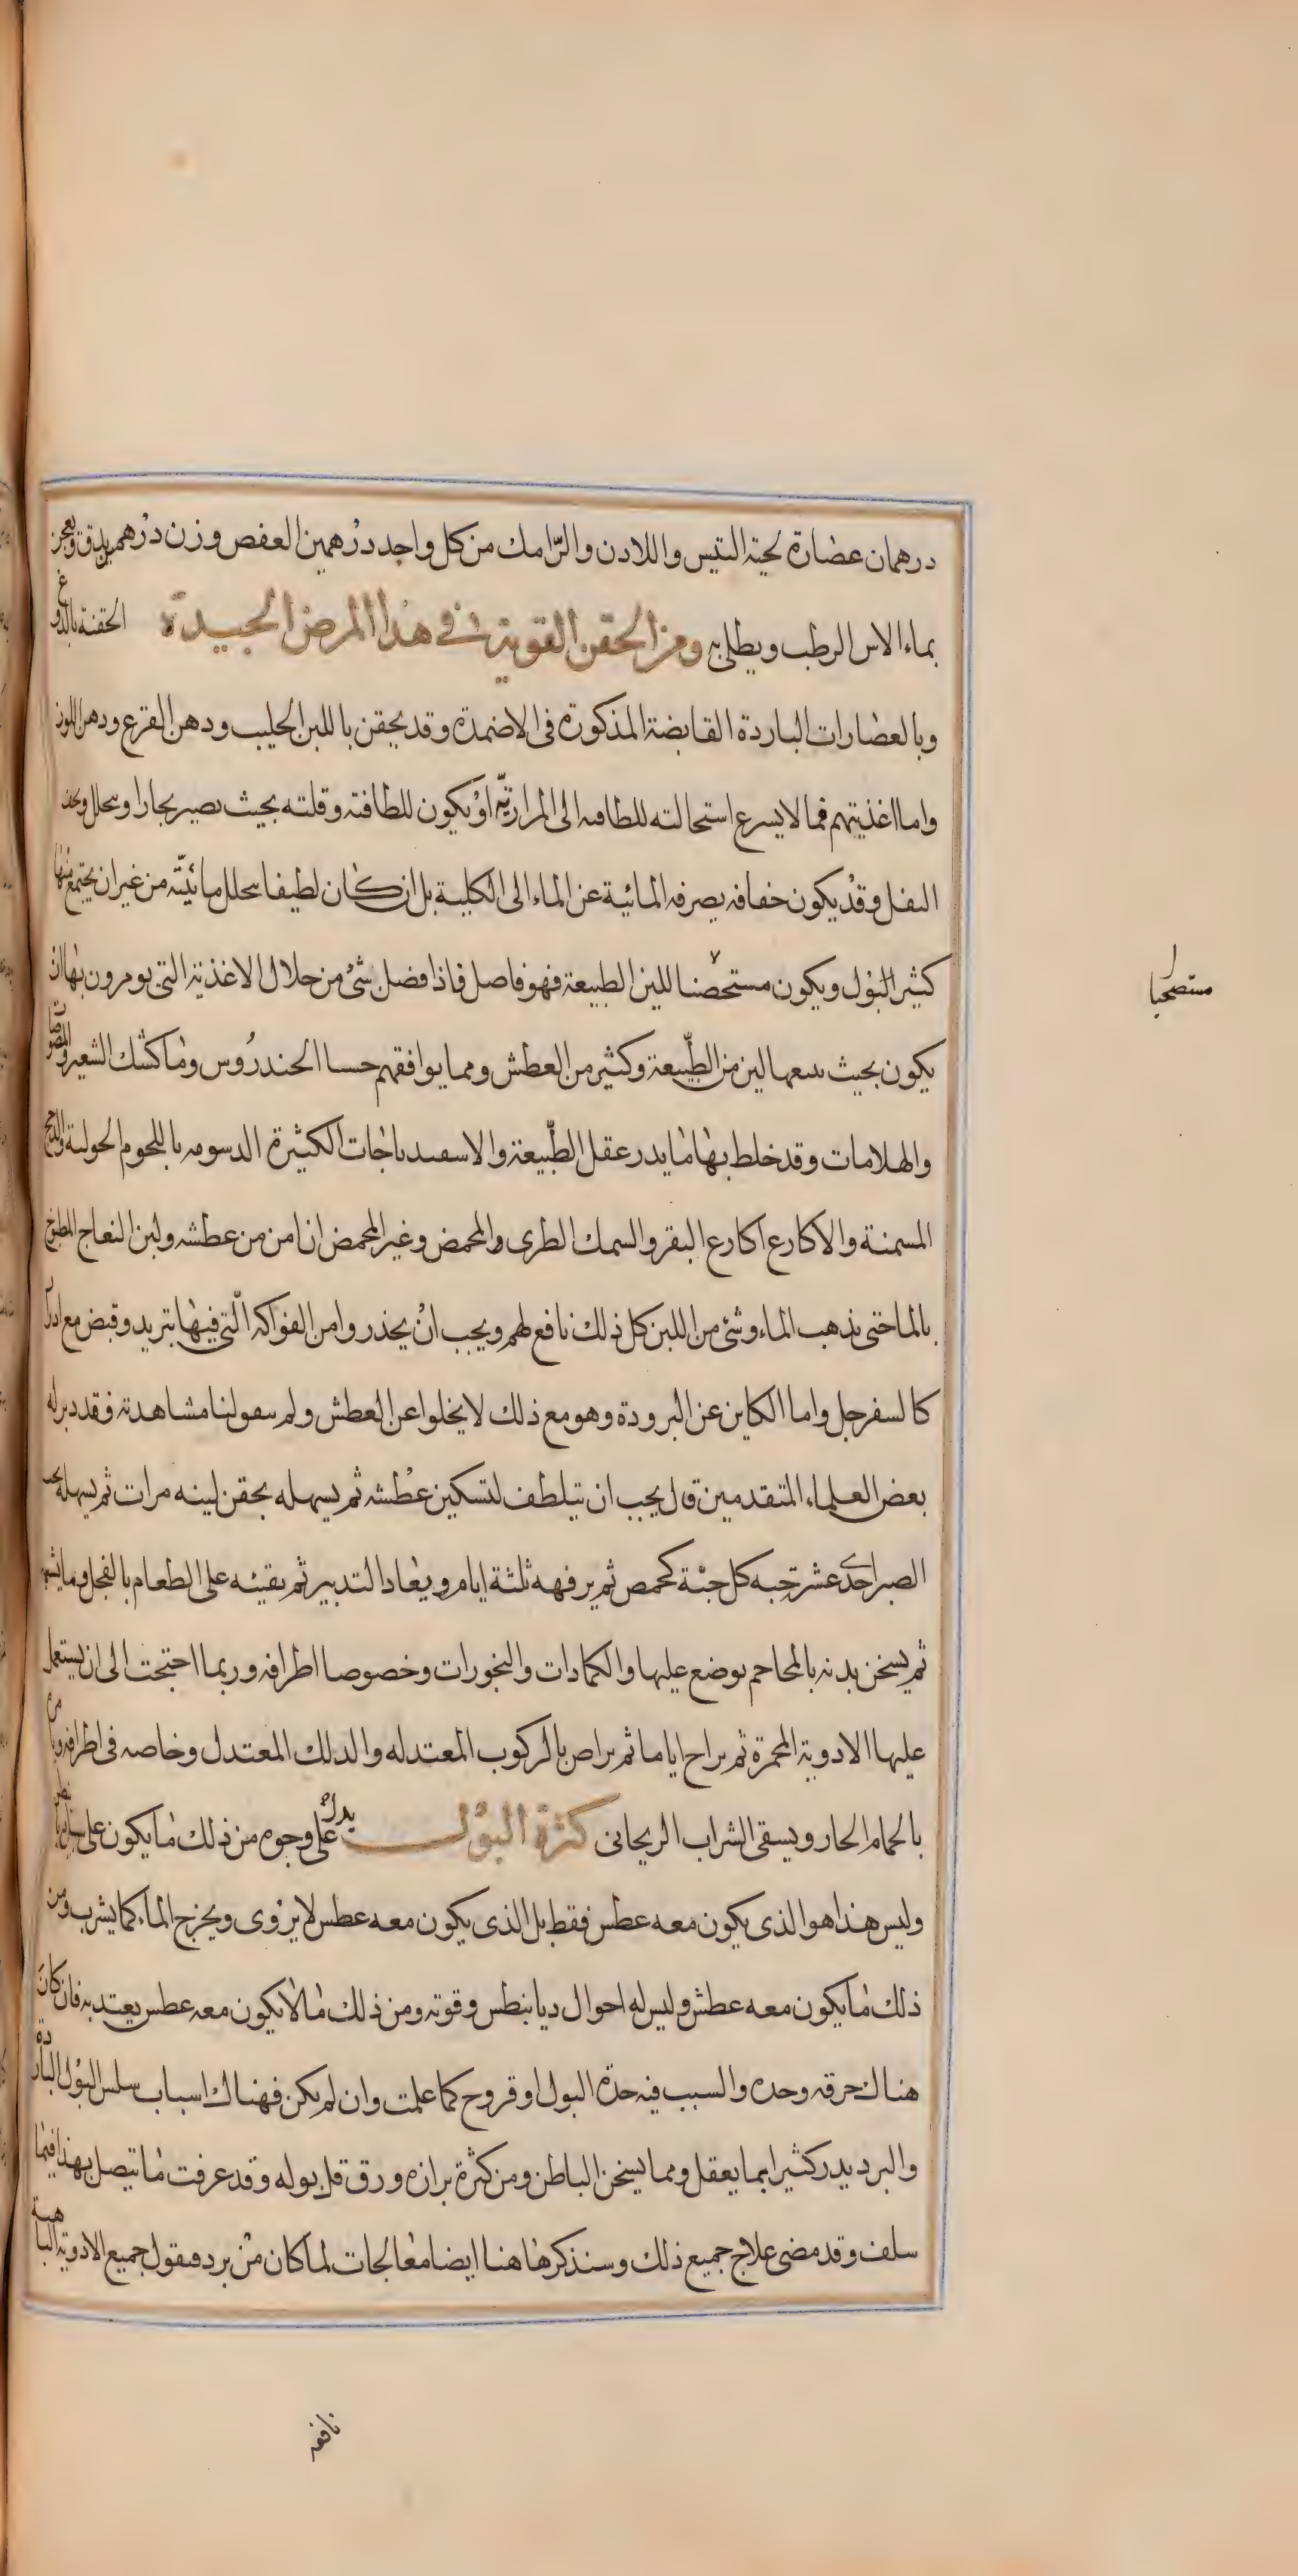 درهمان عصارة لحية التيس واللادن والرّامك من كل واحد درهمين العفص وزن درهم يدق ويعجن
بماء الاس الرطب ويطلى به ومن الحقن القوية في هذا المرض الجيدة الحقنة بالدوغ
وبالعصارات الباردة القابضة المذكورة فى الاضمدة وقد يحقن باللبن الحليب ودهن القرع ودهن اللوز
واما اغذيتهم فما لا يسرع استحالته للطافه الى المراريّة او يكون للطافته وقلته بحيث يصير بخارا وسحلل
الثفل وقد يكون جفافه يصرفه المائية عن الماء الى الكلية بل ان كان لطيفا سحلل مائيّته من غير ان يجتمع منها
كثير البول ويكون مستحصنا للين الطبيعة فهو فاصل فاذا فضل شئ من خلال الاغذية التى يومرون بها ان
يكون بحيث سعها لين من الطّبيعة وكثير من العطش ومما يوافقهم حسا الخندروس وما كشك الشعير والمصوصات
والهلامات وقد خلط بها ما يدر عقل الطّبيعة والاسفيدباجات الكثيرة الدسومه باللحوم الحولية والدجج
المسمنة والاكارع اكارع البقر والسمك الطرى والمحمض وغير المحمض ان امن من عطشه ولبن النعاج المطبوخ
بالما حتى يذهب الماء وشئ من اللبن كل ذلك نافع لهم ويجب ان يحذروا من الفواكه الّتى فيها تبريد وقبض مع ادرار
كالسفرجل واما الكاين عن البرودة وهو مع ذلك لا يخلوا عن العطش ولم سعو لنا مشاهدته فقد دبر له
بعض العلماء المتقدمين قال يجب ان يتلطف لتسكين عطشه ثم يسهله بحقن لينه مرات ثم يسهله بحب
الصبر احدى عشر حبه كل حبّة كحمص ثم يرفهه ثلثة ايام ويعاد التدبير ثم يقيئه على الطعام بالفجل وما يشبهه
ثم يسخن بدنه بالمحاجم يوضع عليها والكمادات والبخورات وخصوصا اطرافه وربما احتجت الى ان يستعمل
عليها الادوية المحمرة ثم يراح اياما ثم يراض بالركوب المعتدله والدلك المعتدل وخاصه فى اطرافه ويامره
بالحمام الحار ويسقى الشراب الريحانى كثرة البول يدل على وجوه من ذلك ما يكون على سبيل ديابنطس
وليس هذا هو الذى يكون معه عطس فقط بل الذى يكون معه عطس لا يروى ويخرج الماء كما يشرب ومن
ذلك ما يكون معه عطش وليس له احوال ديابنطس وقوته ومن ذلك ما لا يكون معه عطس يعتد به فان كان
هناك حرقه وحده والسبب فيه حدّه البول او قروح كما علمت وان لم يكن فهناك اسباب سلس البول الباردة
والبرد يدر كثيرا بما يعقل ومما يسخن الباطن ومن كثرة برازه ورق قل بوله وقد عرفت ما يتصل بهذا فيما
سلف وقد مضى علاج جميع ذلك وسنذكرها هنا ايضا معالجات لما كان من برد فيقول جميع الادوية الباهية
مستصحبا
نافعه